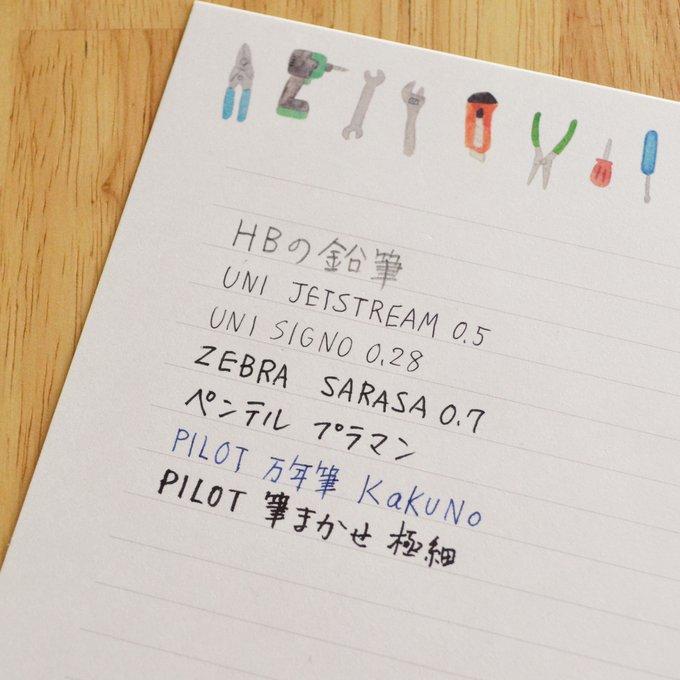 HBの鉛筆
UNI JETSTREAM 0.5
UNI SIGNO 0.28
ZEBRA SARASA 0.7
ペンテル プラマン
PILOT 万年筆 KaKUNo
PILOT 筆まかせ 極細